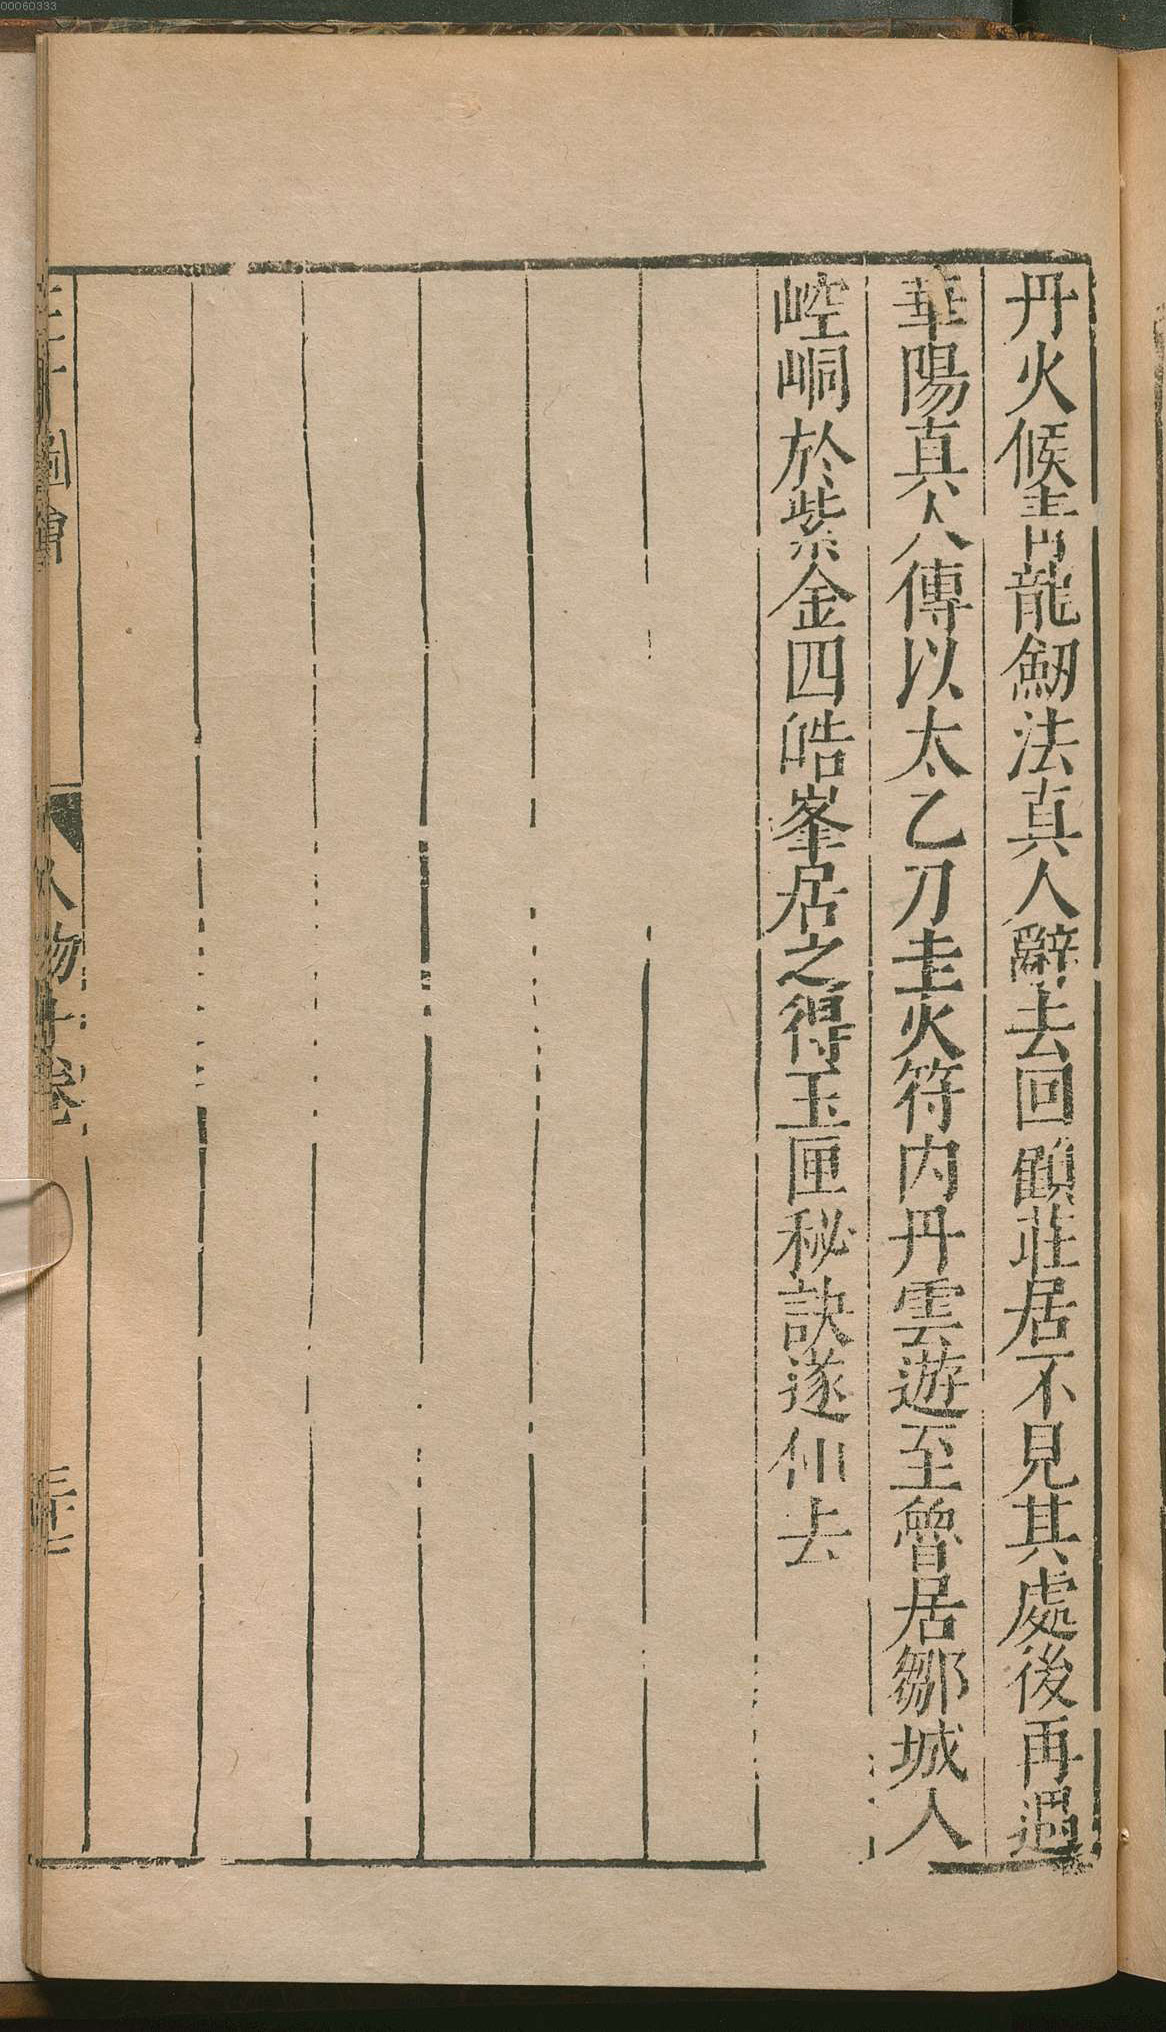 丹火候青龍劒法真人辭去回顧莊居不見其處後再遇
華陽真人傳以太乙刀圭火符內丹雲遊至魯居鄒城入
崆峒於紫金四皓峯居之得玉匣秘訣遂仙去
三才圖會
人物十卷
三十七
00060333